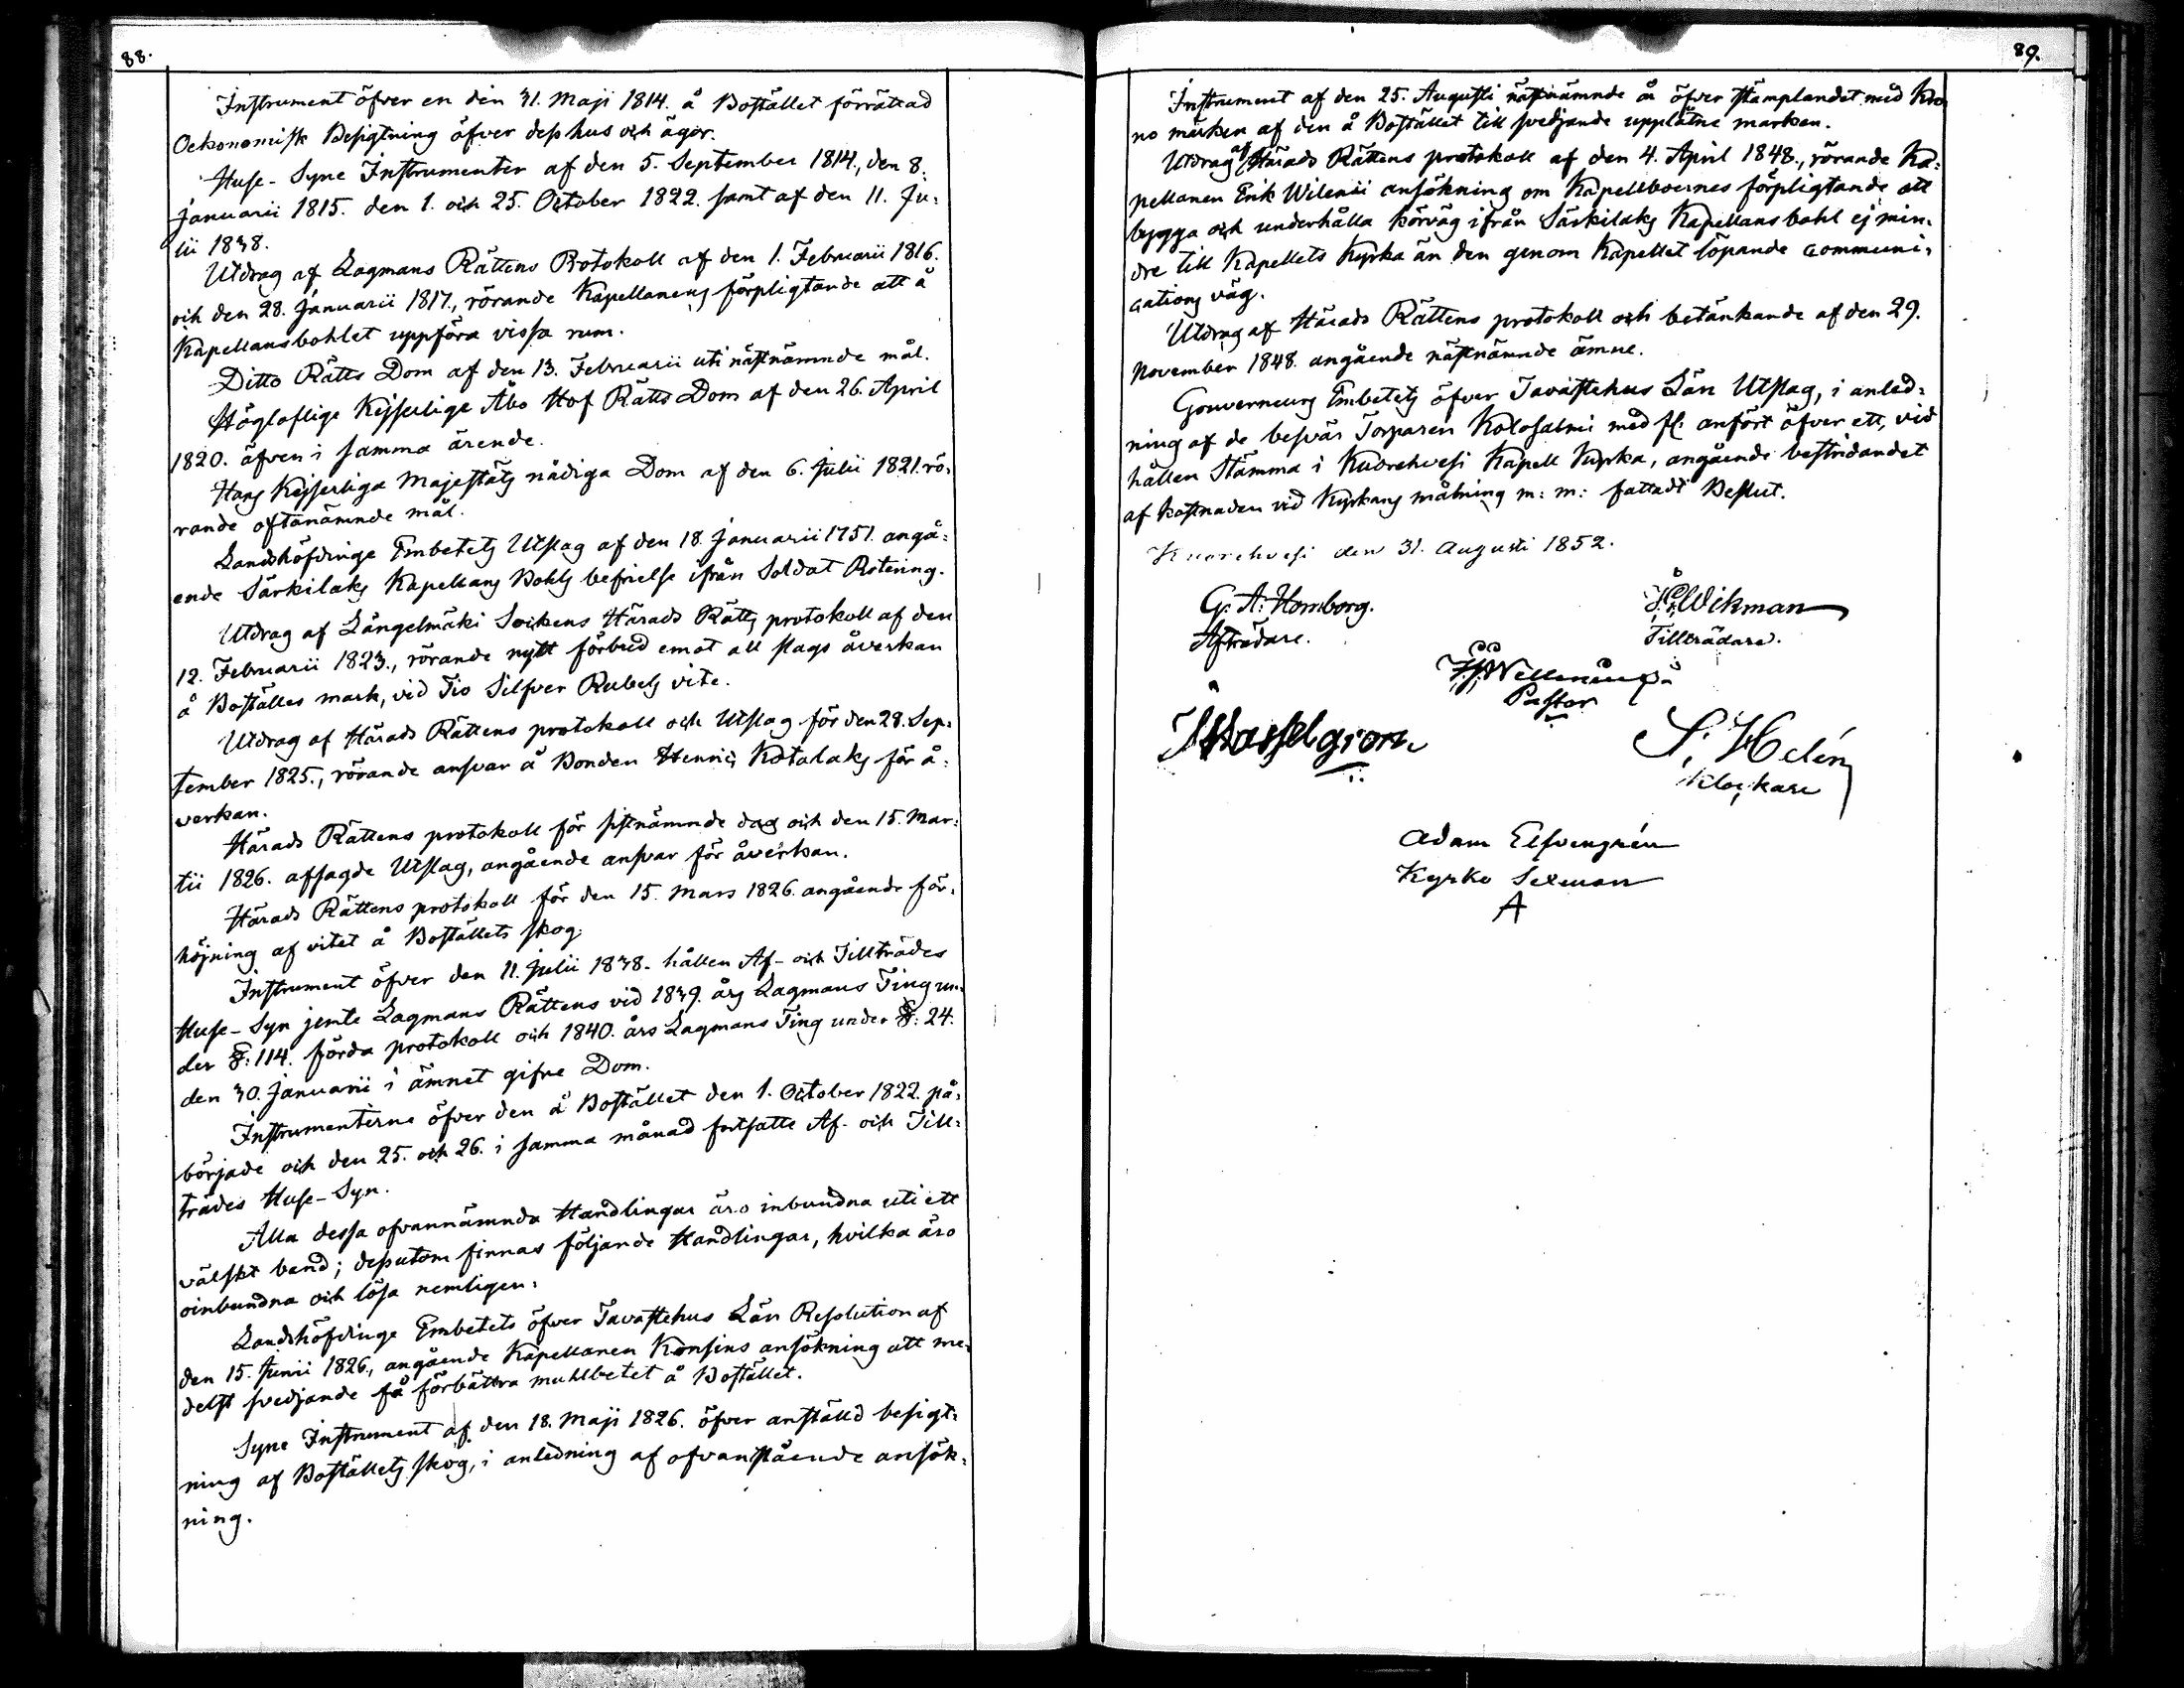 88.
Instrument öfver en den 31. Maji 1814. å Bostället förrättad
Oekonomisk Besigtning öfver dess hus och ägor.
Huse-Syne Instrumenter af den 5. September 1814., den 8.
Januarii 1815. den 1. och 25. October 1822. samt af den 11. Ju-
lii 1838.
Utdrag af Lagmans Rättens Protokoll af den 1. Februarii 1816.
och den 28. Januarii 1817., rörande Kapellanens förpligtande att å
Kapellansbohlet uppföra vissa rum.
Ditto Rätts Dom af den 13. Februarii uti nästnämnde mål.
Högloflige Kejserlige Åbo Hof Rätts Dom af den 26. April
1820. äfven i samma ärende.
Hans Kejserliga Majestäts nådiga Dom af den 6. Julii 1821. rö-
rande oftanämnde mål.
Landshöfdinge Embetets Utslag af den 18. Januarii 1751. angå-
ende Särkilaks Kapellans Bohls befrielse ifrån Soldat Rotering.
Utdrag af Längelmäki Sockens Härads Rätts protokoll af den
12. Februarii 1823., rörande nytt förbud emot all slags åverkan
å Boställes mark, vid Tio Silfver Rubels vite.
Utdrag af Härads Rättens protokoll och Utslag för den 28. Sep-
tember 1825., rörande ansvar å Bonden Henric Kotalaks för å-
verkan.
Härads Rättens protokoll för sistnämnde dag och den 15. Mar-
tii 1826. afsagde Utslag, angående ansvar för åverkan.
Härads Rättens protokoll för den 15. Mars 1826. angående för-
höjning af vitet å Boställets skog.
Instrument öfver den 11. Julii 1838. hållen Af- och Tillträdes
Huse-Syn jemte Lagmans Rättens vid 1839. års Lagmans Ting un-
der §: 114. förda protokoll och 1840. års Lagmans Ting under §: 24.
den 30. Januarii i ämnet gifne Dom.
Instrumenterne öfver den å Bostället den 1. October 1822. på-
började och den 25. och 26. i samma månad fortsatte Af- och Till-
trädes Huse-Syn.
Alla dessa ofvannämnda Handlingar äro inbundna uti ett
välskt band; dessutom finnas följande Handlingar, hvilka äro
oinbundna och lösa nemligen:
Landshöfdinge Embetets öfver Tavastehus Län Resolution af
den 15. Junii 1826., angående Kapellanen Konsins ansökning att me-
delst svedjande få förbättra muhlbetet å Bostället.
Syne Instrument af den 18. Maji 1826. öfver anställd besigt-
ning af Boställets skog, i anledning af ofvanstående ansök-
ning.
89.
Instrument af den 25. Augusti nästnämnde år öfver stämplandet med Kro-
no märken af den å Bostället till svedjande upplåtne marken.
Utdrag af Härads Rättens protokoll af den 4. April 1848., rörande Ka-
pellanen Erik Wilenii ansökning om Kapellboernes förpligtande att
bygga och underhålla körväg ifrån Särkilaks Kapellansbohl ej min-
dre till Kapellets Kyrka än den genom Kapellet löpande communi-
cations väg.
Utdrag af Härads Rättens protokoll och betänkande af den 29.
November 1848. angående nästnämnde ämne.
Gouverneurs Embetets öfver Tavastehus Län Utslag, i anled-
ning af de besvär Torparen Kolosalmi med fl. anfört öfver ett, vid
hållen Stämma i Kuorehvesi Kapell Kyrka, angående bestridandet
af kostnaden vid Kyrkans målning m: m: fattadt Beslut.
Kuorehvesi den 31. Augusti 1852.
G. A. Homborg. Wikman
Afträdare. Tillträdare.
Pastor
S. Helén
Klockare
Adam Elfvengrén
Kyrko Sexman
A